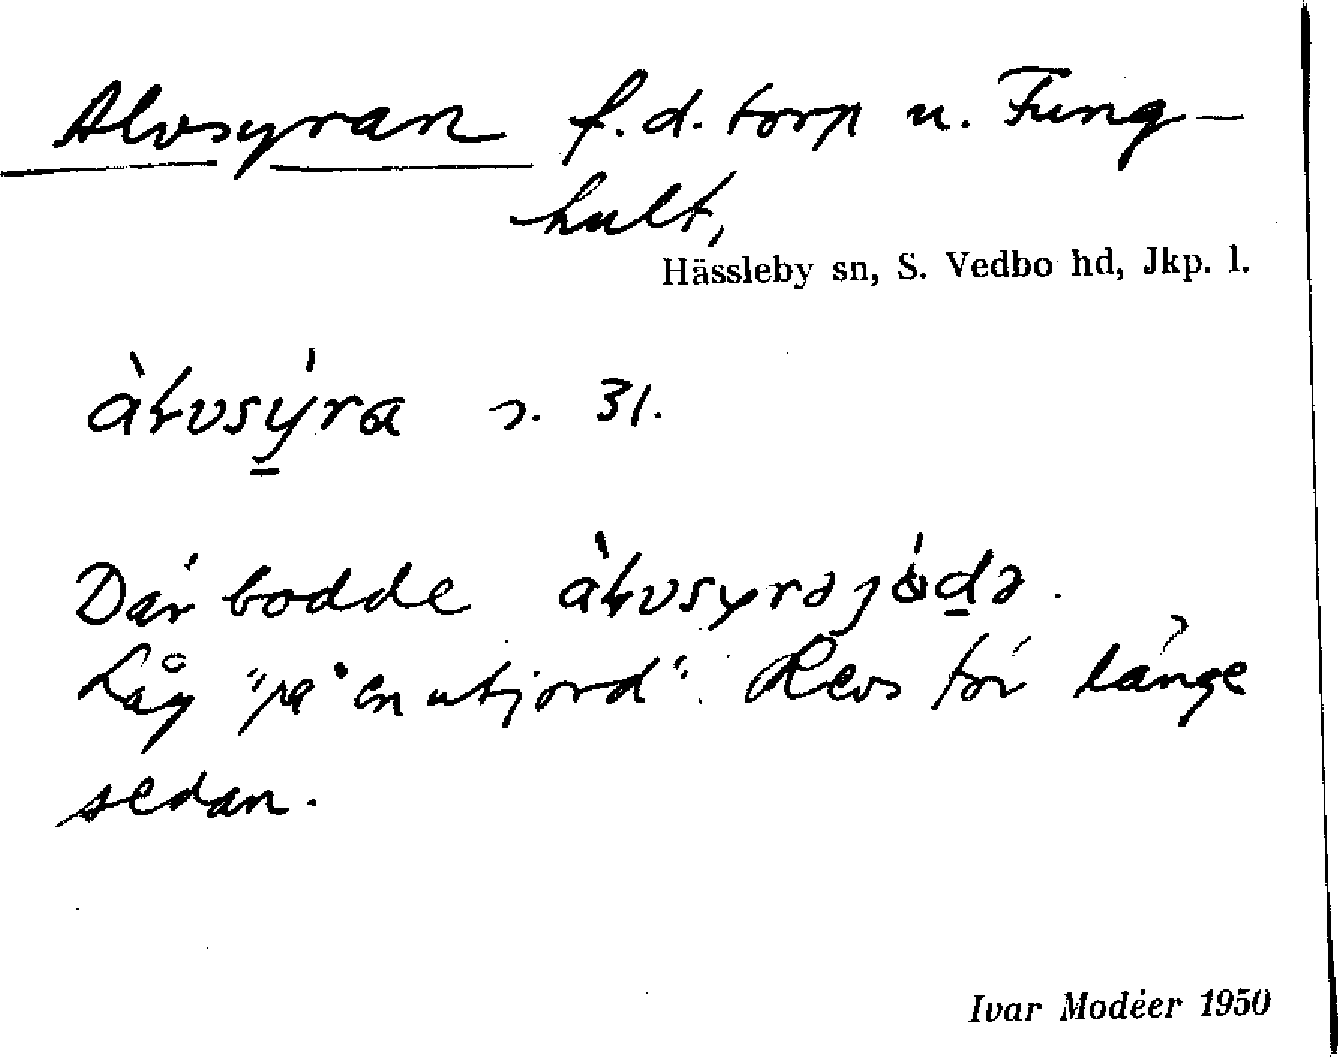 Alvsyran f.d. torp u. Fung-
hult,
Hässleby sn, S. Vedbo hd, Jkp. l.
s. 31.
Där bodde
Låg "på en utjord". Revs för länge
sedan.
Ivar Modéer 1950